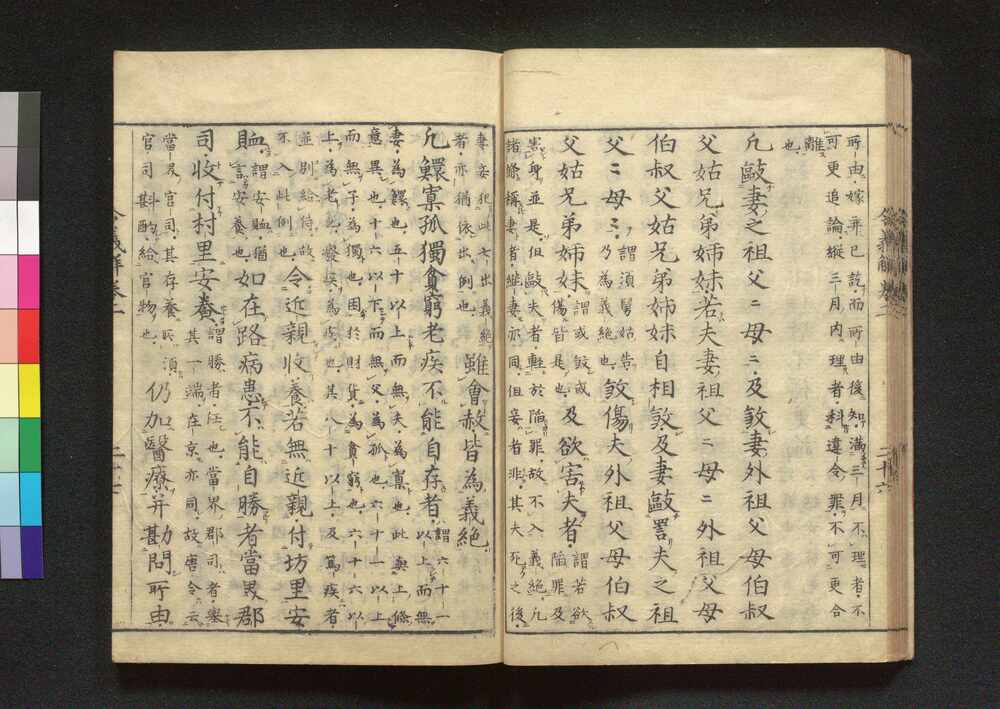 所由。嫁乖已訖。而所由後知。滿三月不理者。不
可更追論。縱三月内。理者。科違令罪。不可更合
離
也。
凡毆妻之祖父二母二及殺妻外祖父母伯叔
父姑兄弟姉妹若夫妻祖父二母二外祖父母
伯叔父姑兄弟姉妹自相殺及妻毆詈夫之祖
父二母三 謂須舅姑告
乃爲義絶也 殺傷夫外祖父母伯叔
父姑兄弟姉妹 謂或殺或
傷皆是也 及欲害夫者 謂若欲
陥罪及
害身並是。但毆夫者。輕於陥罪。故不入義絶。凡
諸條稱妻者。繼妻亦同。但妾者非。其夫死之後。
妻妾犯此七出義絶
者。亦猶依出例也。 雖會赦皆爲義絶
凡鰥寡孤獨貧窮老疾不能自存者。 謂六十一
以上而無
妻。爲鰥也。五十以上而無夫。爲寡也。此與上條
意異也。十六以下而無父。爲孤也。六十一以上
而無子。爲獨也。困於財貨。爲貧窮也。六十六以
上。爲老也。癈疾。爲疾也。其八十以上。及篤疾者。
並別給侍。故
不入此例也。 令近親收養若無近親付坊里安
賉。 謂安賉。猶
言安養也。 如在路病患不能自勝者當界郡
司收付村里安養。 謂勝者。任也。當界郡司者。擧
其一端。在京亦同。故唐令云
當界官司。其存養所須。
官司斟酌。給官物也。 仍加醫療并勘問所由。